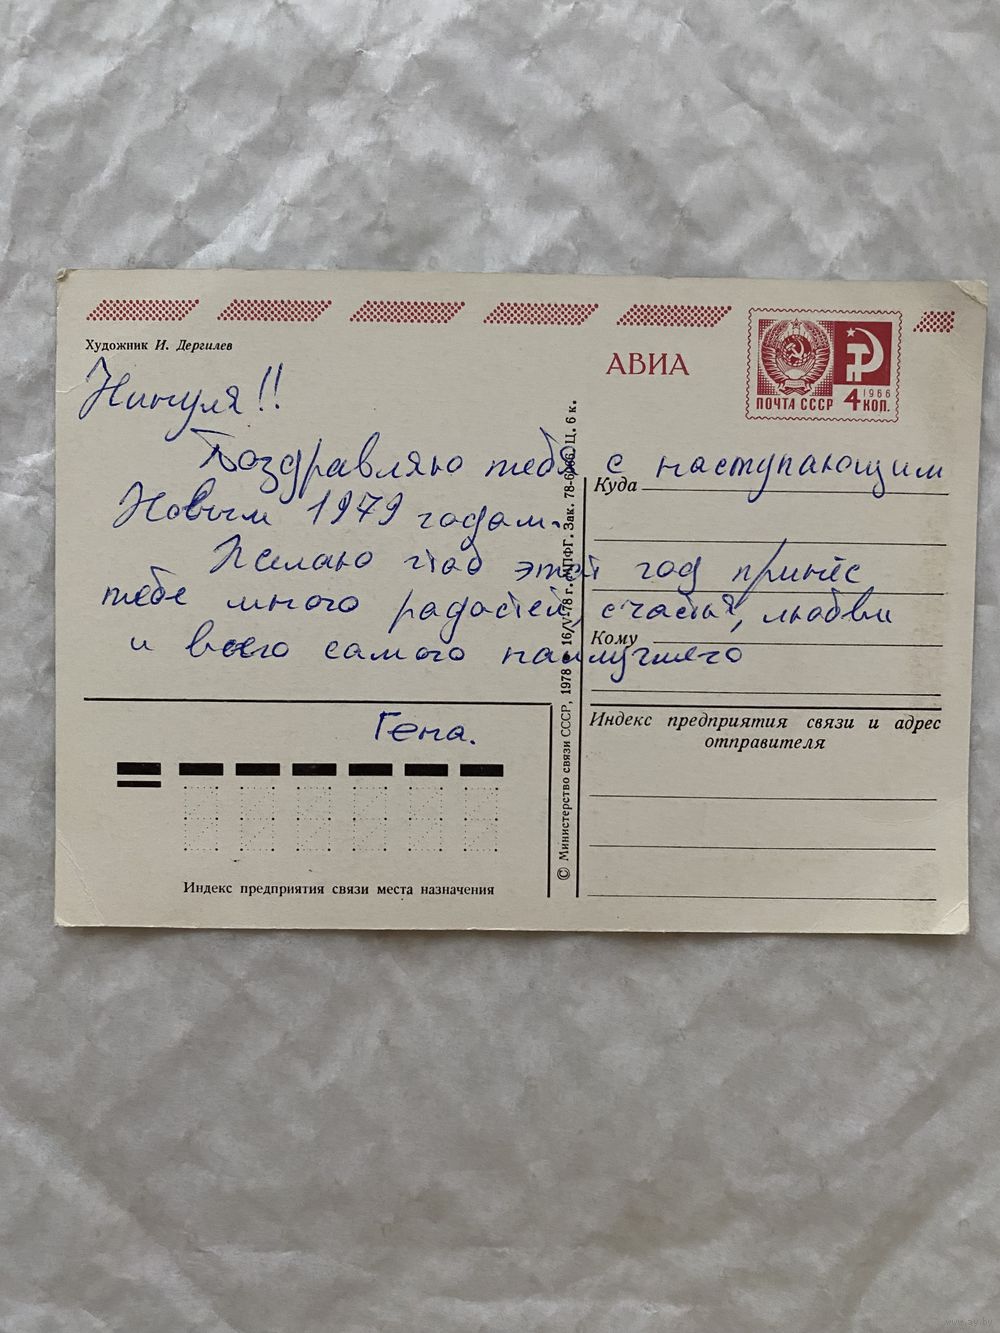 Художник И. Дергилев
АВИА
ПОЧТА СССР 4 КОП.
1966
Нинуля!!
Поздравляю тебя с наступающим
Новым 1979 годом.
Желаю чтоб этот год принёс
тебе много радостей, счастья, любви
и всего самого наилучшего
Гена.
Куда
Кому
Индекс предприятия связи и адрес
отправителя
Индекс предприятия связи места назначения
© Министерство связи СССР, 1978 • 16/V-78 г. МПФГ. Зак. Ц. 6 к.
www.ay.by